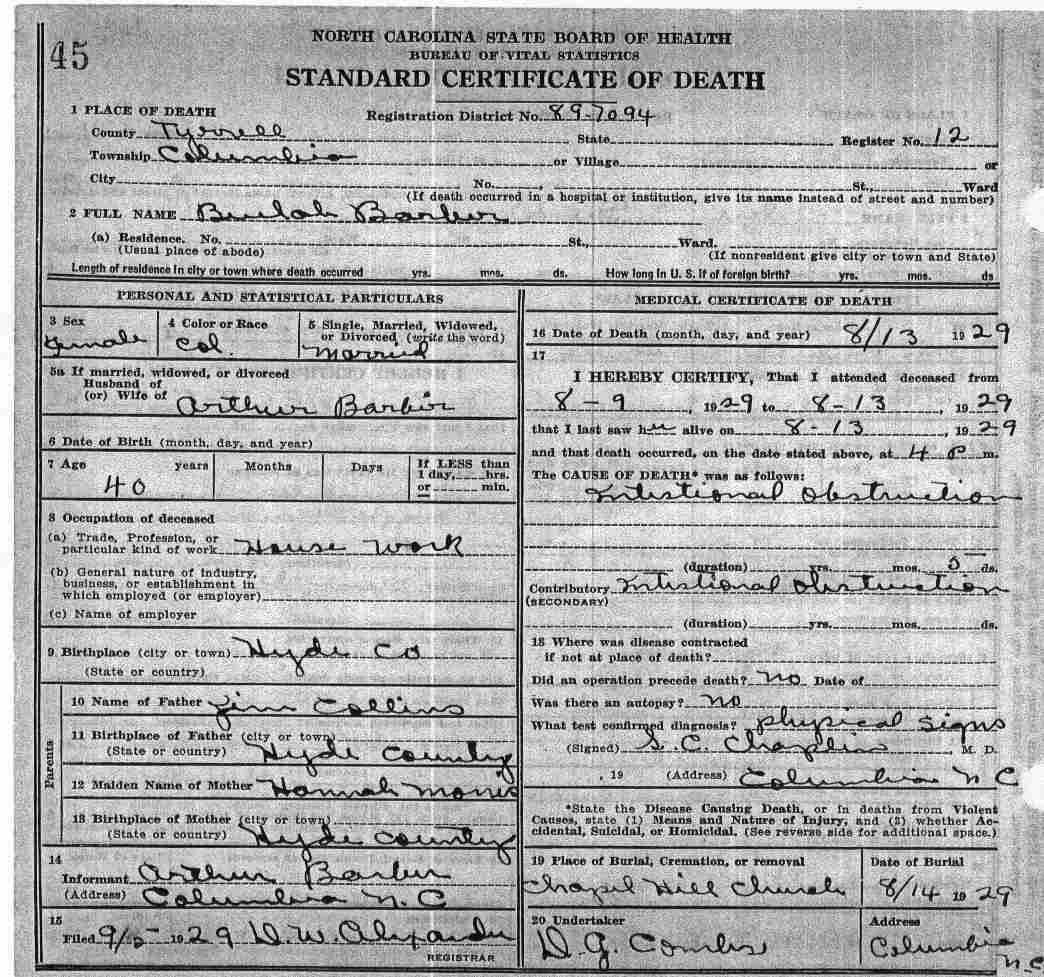 45
NORTH CAROLINA STATE BOARD OF HEALTH
BUREAU OF VITAL STATISTICS
STANDARD CERTIFICATE OF DEATH
1 PLACE OF DEATH Registration District No. 89-7094
County Tyrrell State Register No. 12
Township Columbia or Village or
City No. , St., Ward
(If death occurred in a hospital or institution, give its name instead of street and number)
2 FULL NAME Beulah Barber
(a) Residence. No. St., Ward.
(Usual place of abode) (If nonresident give city or town and State)
Length of residence in city or town where death occurred yrs. mos. ds. How long in U. S. if of foreign birth? yrs. mos. ds
PERSONAL AND STATISTICAL PARTICULARS
3 Sex 4 Color or Race 5 Single, Married, Widowed,
or Divorced, (write the word)
Female Col. Married
5a If married, widowed, or divorced
Husband of
(or) Wife of Arthur Barber
6 Date of Birth (month, day, and year)
7 Age years Months Days If LESS than
1 day, hrs.
40 or min.
8 Occupation of deceased
(a) Trade, Profession, or
particular kind of work House Work
(b) General nature of industry,
business, or establishment in
which employed (or employer)
(c) Name of employer
9. Birthplace (city or town) Hyde Co
(State or country)
Parents
10 Name of Father Jim Collins
11 Birthplace of Father (city or town)
(State or country) Hyde County
12 Maiden Name of Mother Hannah Morris
13 Birthplace of Mother (city or town)
(State or country) Hyde County
14
Informant Arthur Barber
(Address) Columbia N.C
15
Filed 9/5 1929 D.W. Alexander
REGISTRAR
MEDICAL CERTIFICATE OF DEATH
16 Date of Death (month, day, and year) 8/13 1929
17
I HEREBY CERTIFY, That I attended deceased from
8-9, 1929 to 8-13, 1929
that I last saw her alive on 8-13, 1929
and that death occurred, on the date stated above, at 4 P m.
The CAUSE OF DEATH* was as follows:
Intistional Obstruction
(duration) yrs. mos. 5 ds.
Contributory Intistional Obstruction
(SECONDARY)
(duration) yrs. mos. ds.
18 Where was disease contracted
if not at place of death?
Did an operation precede death? No Date of
Was there an autopsy? No
What test confirmed diagnosis? Physical Signs
(Signed) S. C. Chaplin M. D.
, 19 (Address) Columbia N C
*State the Disease Causing Death, or in deaths from Violent
Causes, state (1) Means and Nature of Injury, and (2) whether Ac-
cidental, Suicidal, or Homicidal. (See reverse side for additional space.)
19 Place of Burial, Cremation, or removal Date of Burial
Chapel Hill Church 8/14 1929
20 Undertaker Address
D. G. Combs Columbia
N.C